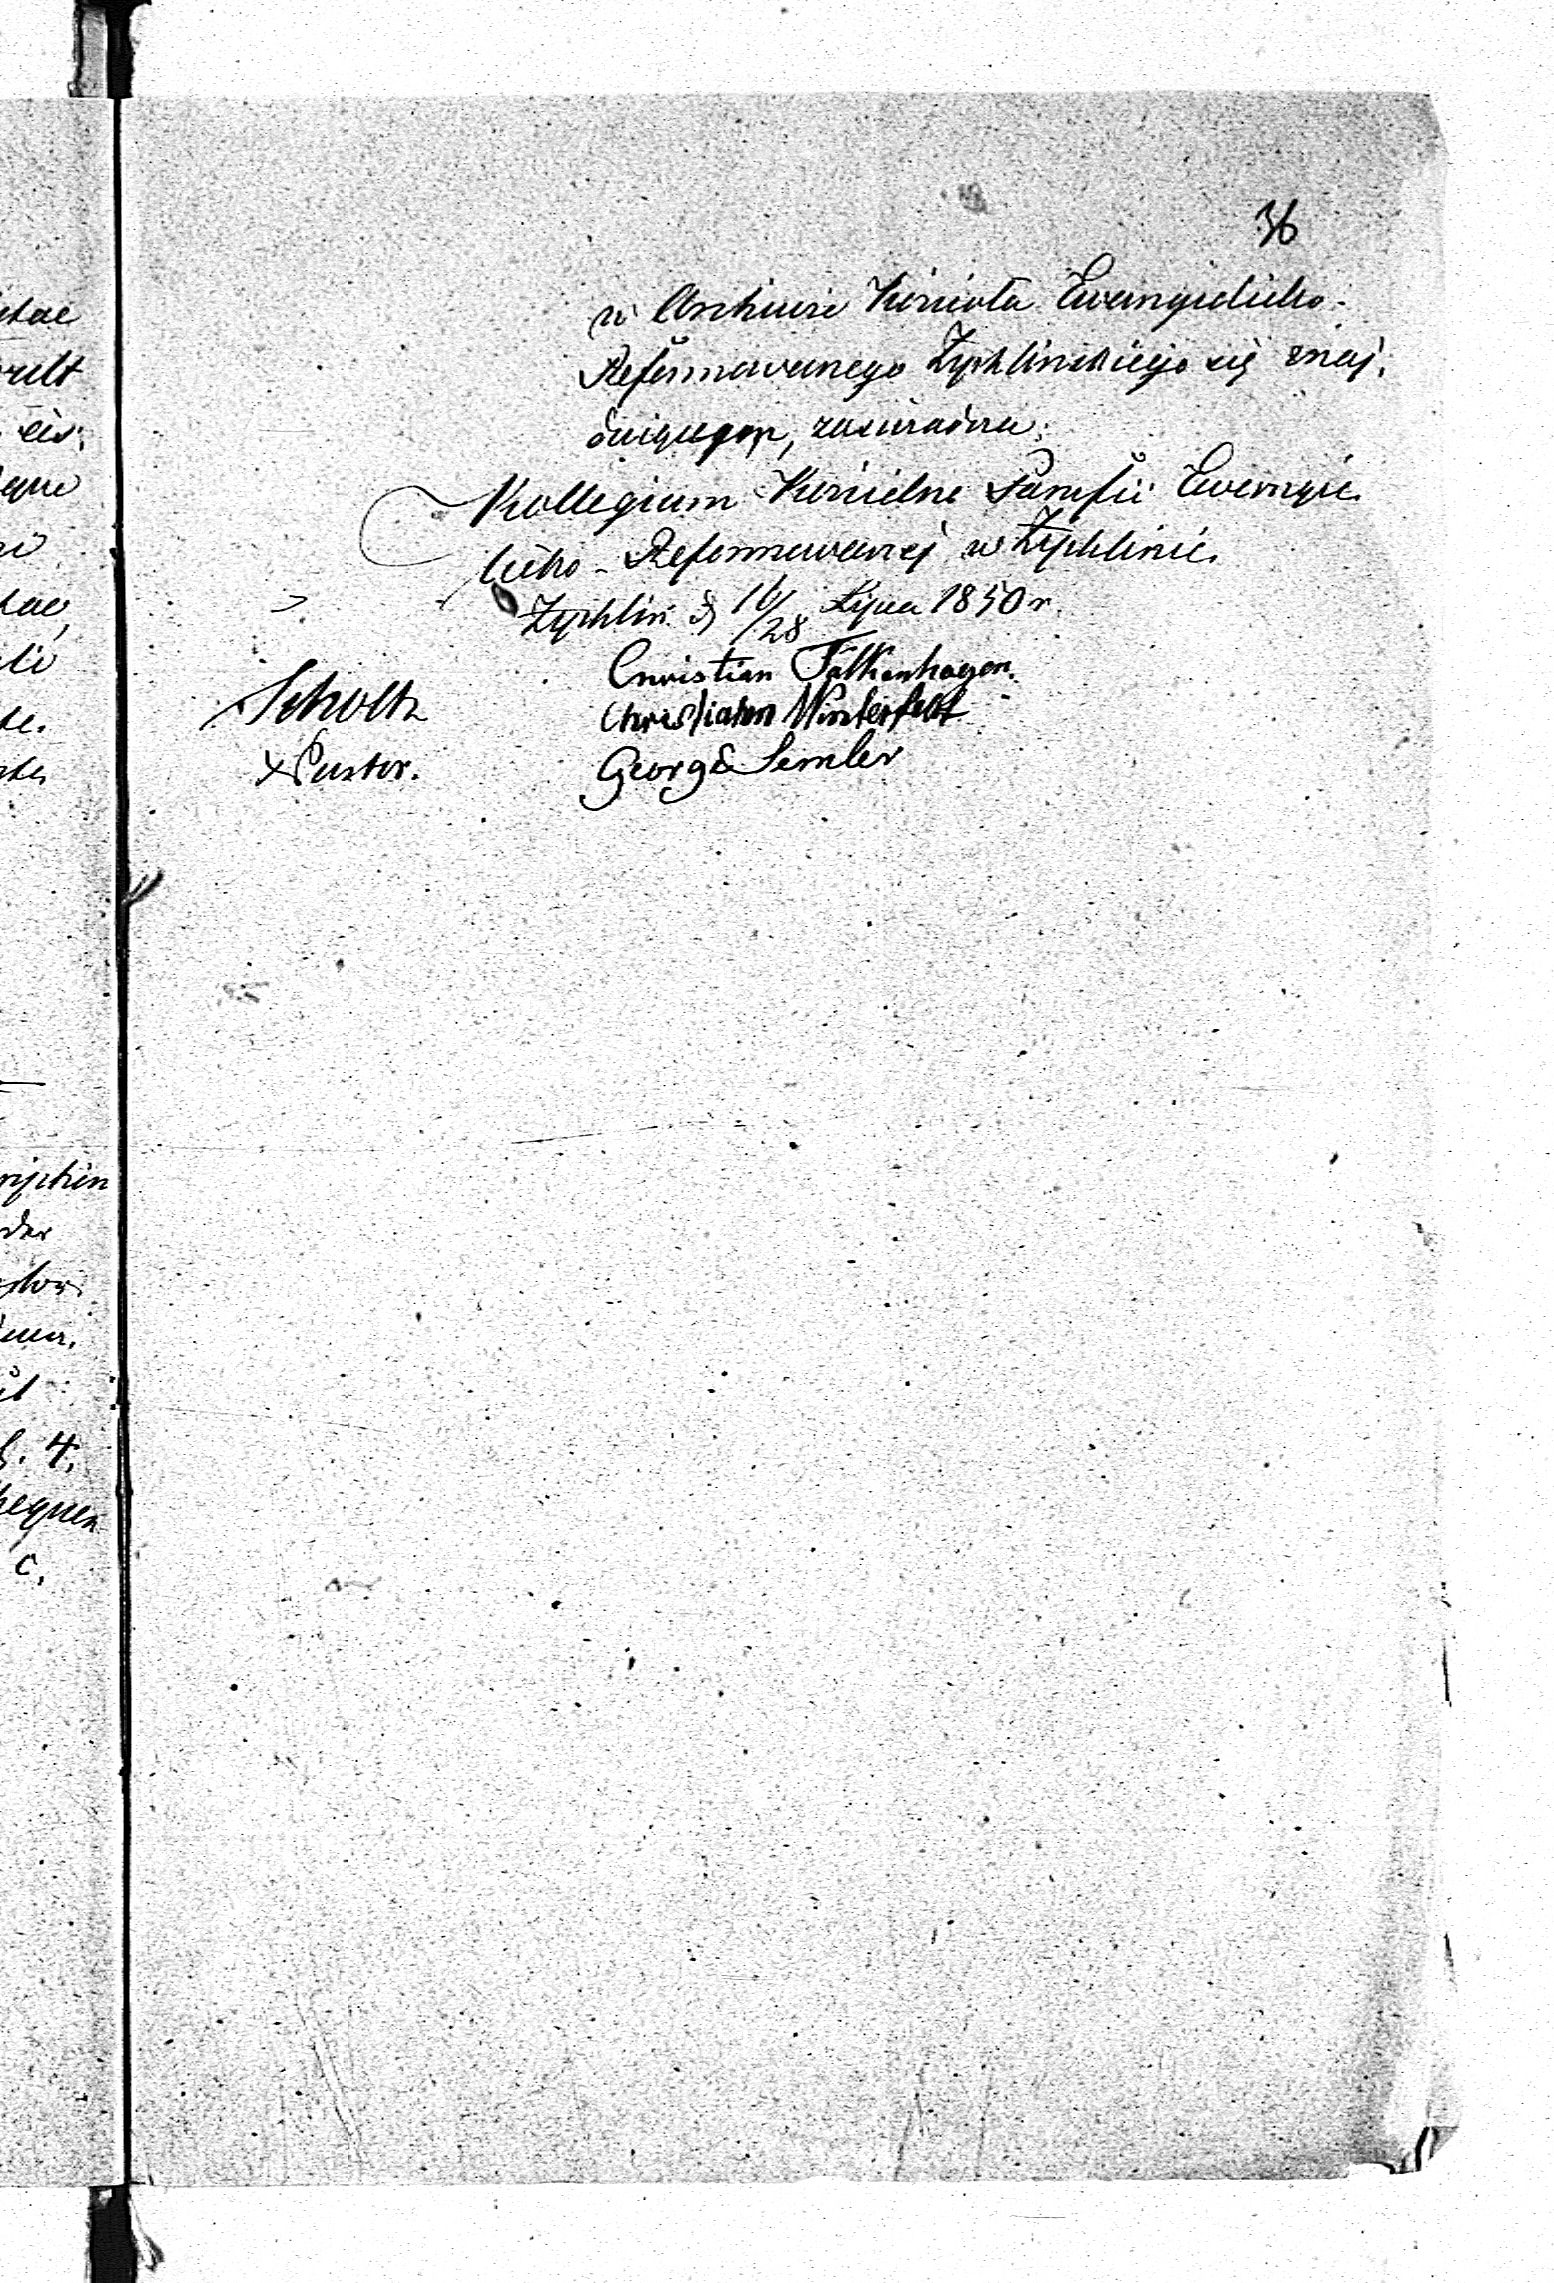 36
w Archiwie Kościoła Ewangielicko-
Reformowanego Żychlińskiego się znaj-
duiącego, zaświadcza.
Kollegium Kościelne Parafii Ewangie-
licko-Reformowanej w Żychlinie.
Żychlin d 16/28 Lipca 1850 r.
Christian Falkenhagen.
Scholtz
Christian Winterfeldt
Pastor.
George Semler
ripten
der
4.
c.